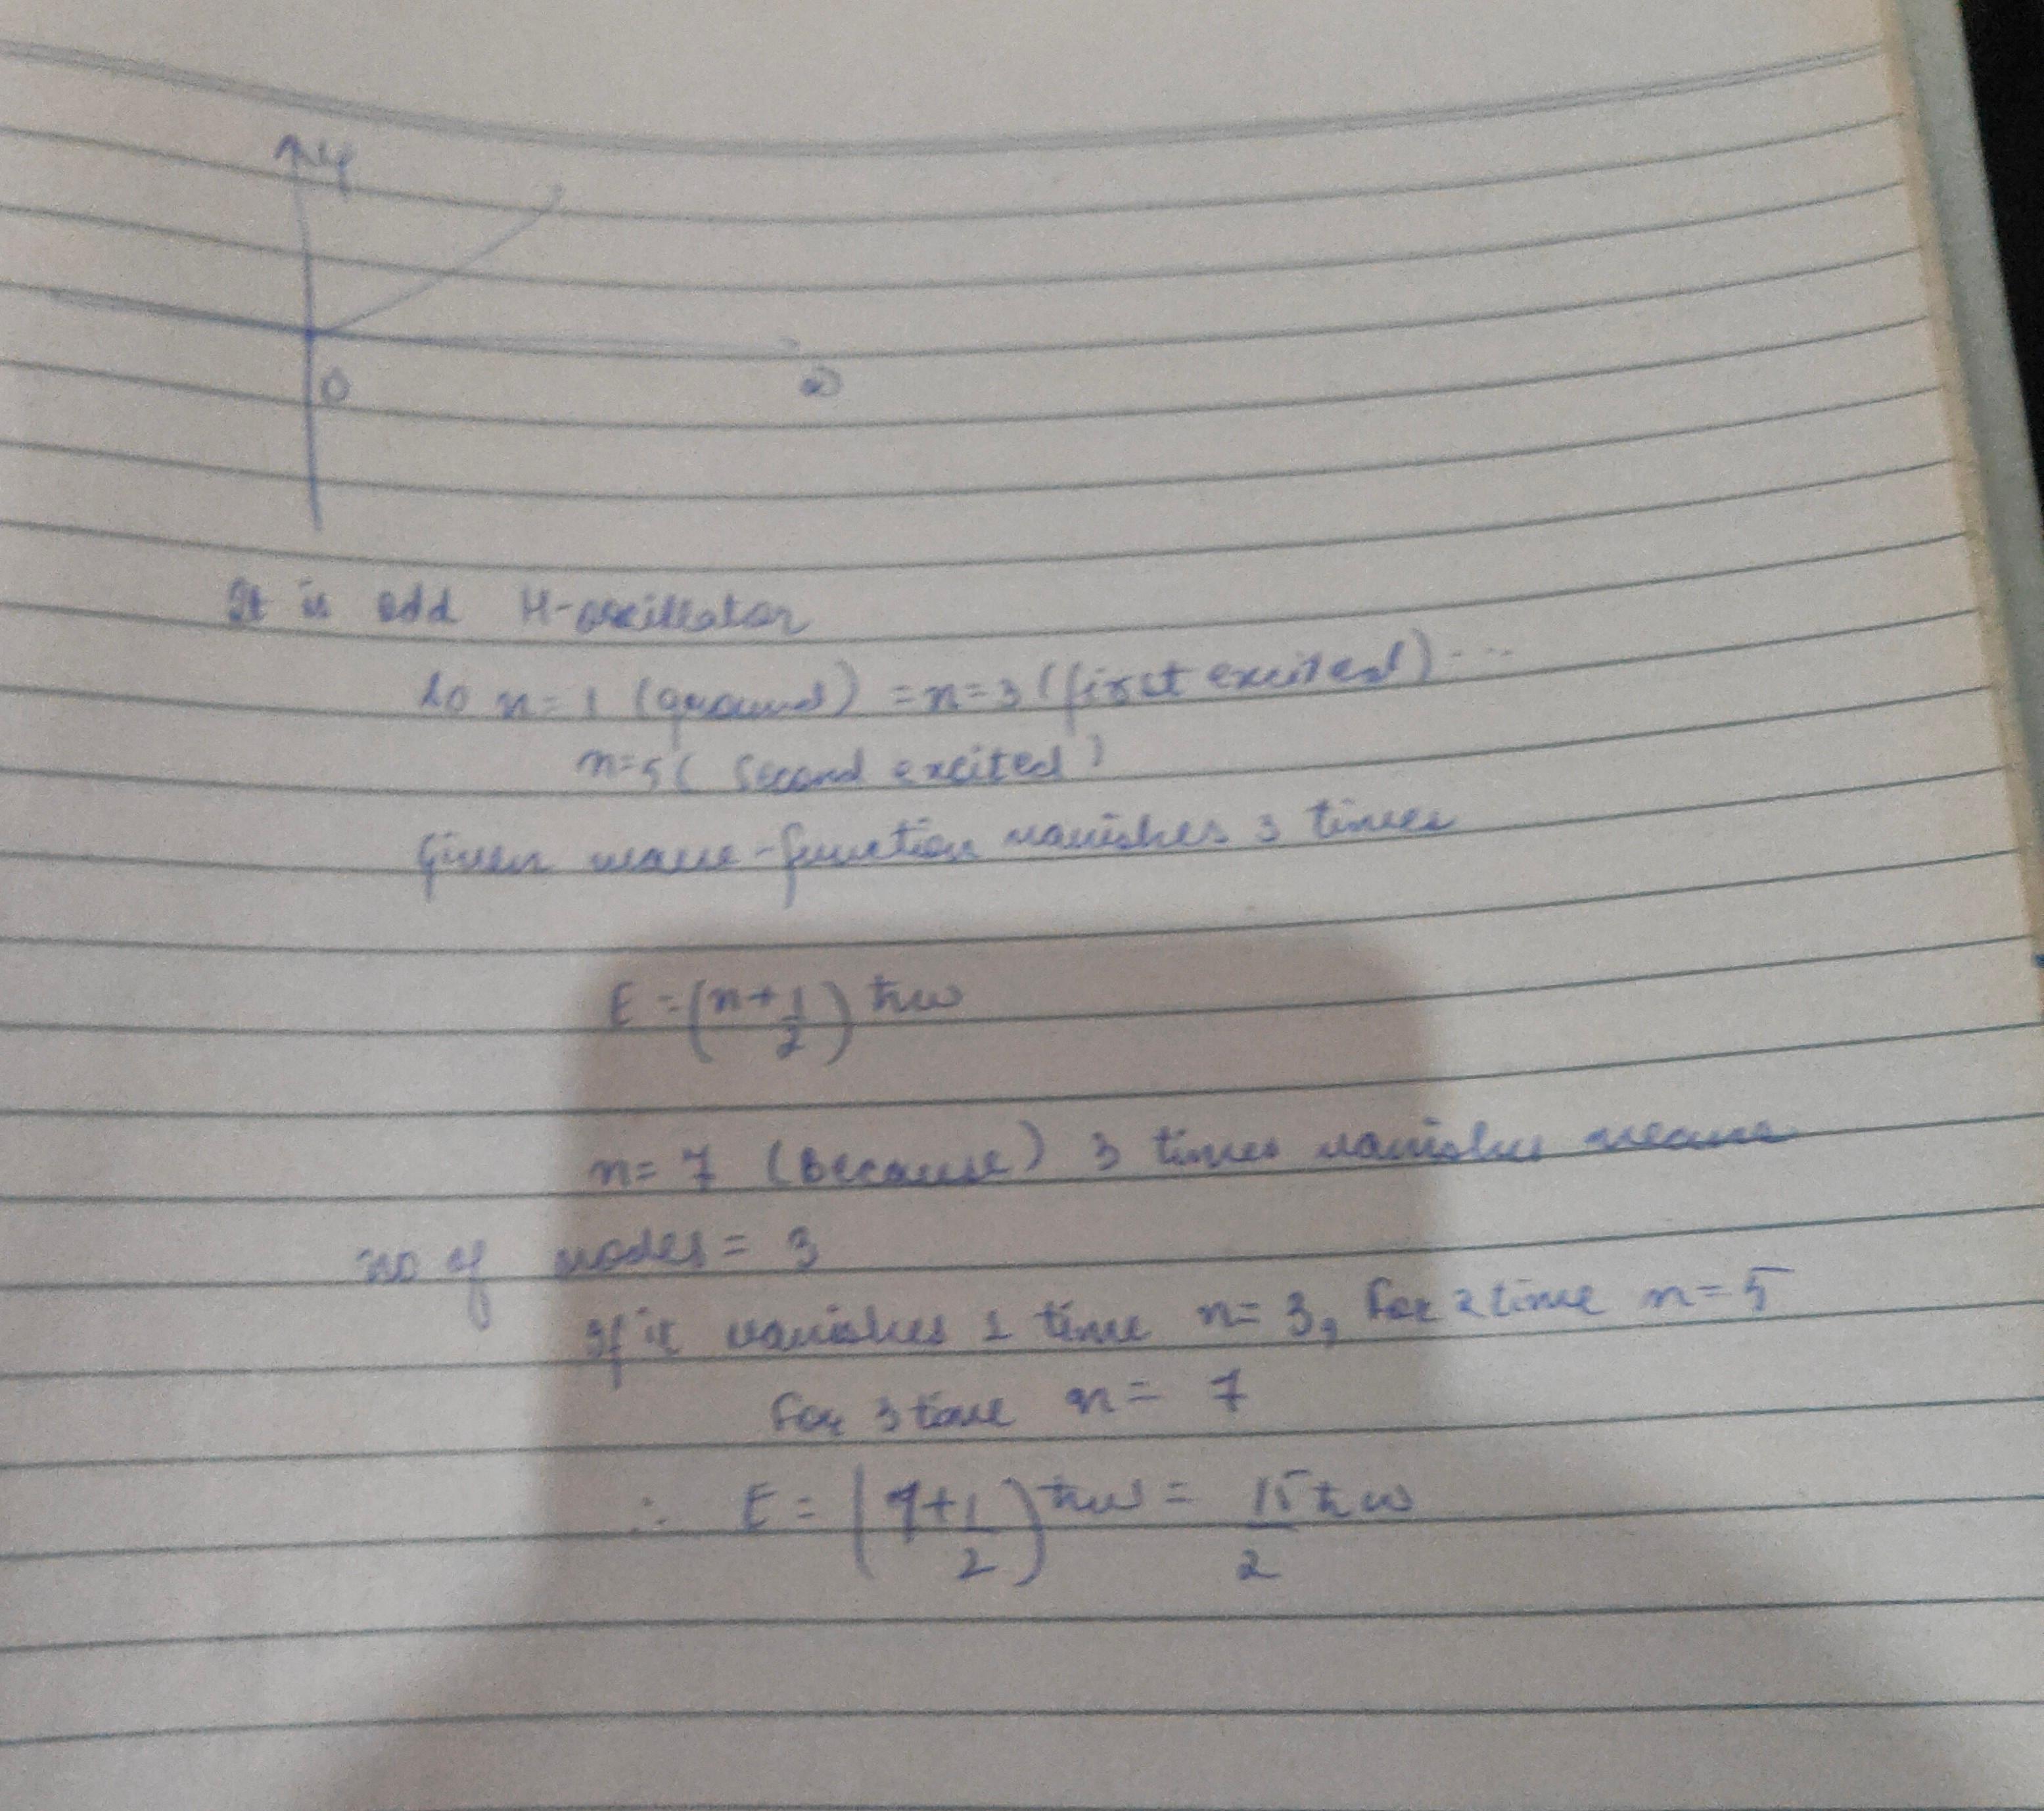 ψ
0
∞
It is odd H-oscillator
so n=1 (ground) = n=3 (first excited) ....
n=5 ( Second excited )
Given wave-function vanishes 3 times
E = (n+1/2) ħω
n= 7 (Because) 3 times vanishes means
no of nodes = 3
If it vanishes 1 time n= 3, For 2 time n=5
For 3 time n= 7
∴ E = (7+1/2) ħω = 15/2 ħω